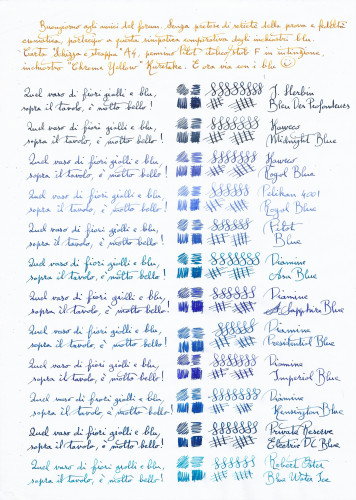 Buongiorno agli amici del forum. Senza pretese di artista della penna e fedeltà
cromatica, partecipo a questa simpatica comparativa degli inchiostri blu.
Carta "Schizza e strappa" A4, pennino Pilot stilco F in intinzione,
inchiostro "Chrome Yellow" Kuretake. E ora via con i blu
Quel vaso di fiori gialli e blu, J. Herbin
sopra il tavolo, è molto bello! Bleu Des Profondeurs
Quel vaso di fiori gialli e blu, Kaweco
sopra il tavolo, è molto bello! Midnight Blue
Quel vaso di fiori gialli e blu, Kaweco
sopra il tavolo, è molto bello! Royal Blue
Quel vaso di fiori gialli e blu, Pelikan 4001
sopra il tavolo, è molto bello! Royal Blue
Quel vaso di fiori gialli e blu, Pilot
sopra il tavolo, è molto bello! Blue
Quel vaso di fiori gialli e blu, Diamine
sopra il tavolo, è molto bello! Asa Blue
Quel vaso di fiori gialli e blu, Diamine
sopra il tavolo, è molto bello! Sapphire Blue
Quel vaso di fiori gialli e blu, Diamine
sopra il tavolo, è molto bello! Presidential Blue
Quel vaso di fiori gialli e blu, Diamine
sopra il tavolo, è molto bello! Imperial Blue
Quel vaso di fiori gialli e blu, Diamine
sopra il tavolo, è molto bello! Kensington Blue
Quel vaso di fiori gialli e blu, Private Reserve
sopra il tavolo, è molto bello! Electric DC Blue
Quel vaso di fiori gialli e blu, Robert Oster
sopra il tavolo, è molto bello! Blue Water Ice